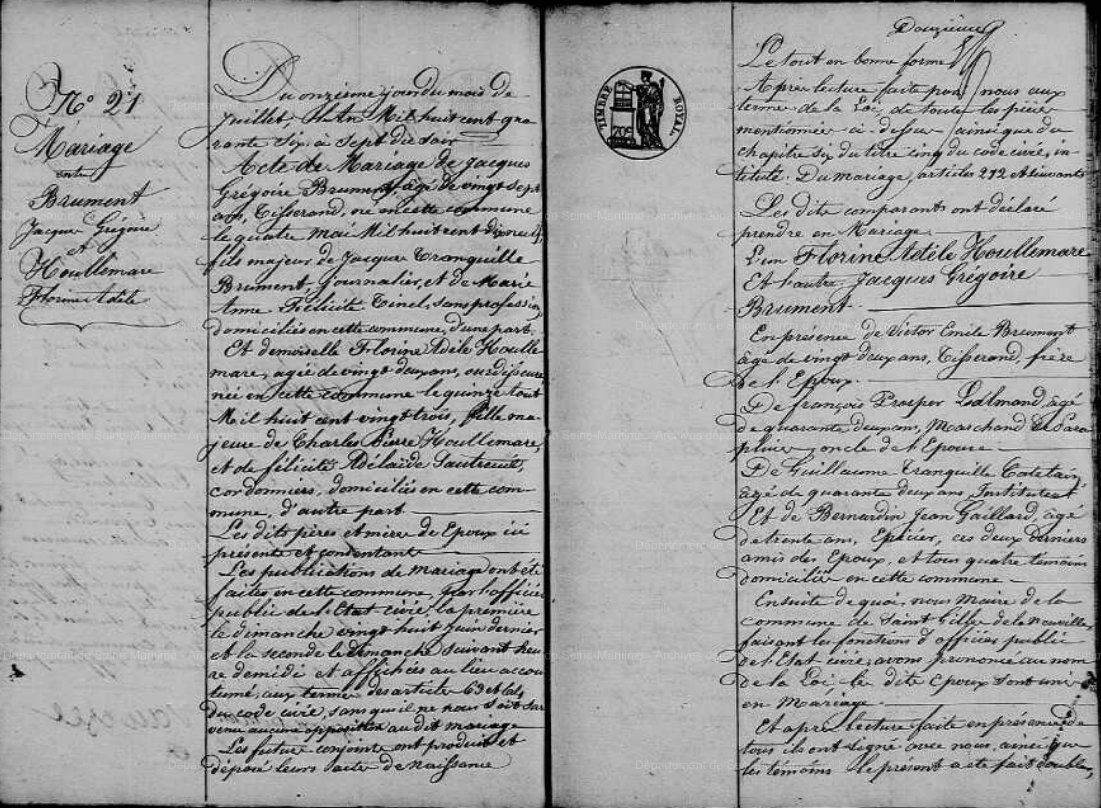 N° 21
Mariage
entre
Brument
Jacques Grégoire
et
Houllemare
Florine Adèle
Du onzième jour du mois de
Juillet l'An Mil huit cent qua
rante six, à sept du soir
Acte de Mariage de Jacques
Grégoire Brument, âgé de vingt sept
ans, Tisserand, né en cette commune
le quatre mai Mil huit cent dix neuf,
fils majeur de Jacques Tranquille
Brument, Journalier, et de Marie
Anne Félicité Tinel, sans profession,
domiciliés en cette commune, d'une part.
Et demoiselle Florine Adèle Houlle
mare, agée de vingt deux ans, ourdisseuse
née en cette commune le quinze août
Mil huit cent vingt trois, fille ma-
jeure de Charles Pierre Houllemare,
et de félicité Adélaïde Sautreuil,
cordonniers, domiciliés en cette com-
mune, d'autre part.
Les dits pères et mères de Epoux ici
présents et consentants
Les publications de mariage ont été
faites en cette commune, par l'officier
public de l'Etat civil la première
le dimanche vingt huit Juin dernier
et la seconde le dimanche suivant heu
re de midi et affichées au lieu accou
tumé, aux termes des articles 63 et 64
du code civil, sans qu'il ne nous soit sur
venu aucune opposition au dit mariage
Les futurs conjoints ont produit et
déposé leurs actes de naissance
Douzième
TIMBRE ROYAL
70c
Le tout en bonne forme
Après lecture faite par nous aux
termes de la Loi, de toutes les pièces
mentionnées ci-dessus, ainsi que du
chapitre six du titre cinq du code civil, in-
titulé: Du mariage, articles 212 et suivants
Les dits comparants ont déclaré
prendre en Mariage
L'un Florine Adèle Houllemare
Et l'autre, Jacques Grégoire
Brument.
En présence de Victor Emile Brument
âgé de vingt deux ans, Tisserand, frère
de l'Epoux.
De françois Prosper Lalmand, âgé
de quarante deux ans, Marchand de Para
pluies, oncle de l'Epouse
De Guillaume Tranquille
âgé de quarante deux ans, Instituteur
Et de Bernardin Jean Gaillard, âgé
de trente ans, Epicier, ces deux derniers
amis des Epoux, et tous quatre témoins
domiciliés en cette commune
Ensuite de quoi, nous Maire de la
commune de Saint Gilles de la neuville
faisant les fonctions d'officier public
de l'Etat civil, avons prononcé au nom
de la Loi, les dits Epoux sont unis
en Mariage.
Et après lecture faite en présence de
tous ils ont signé avec nous, ainsi que
les témoins le présent acte fait double,